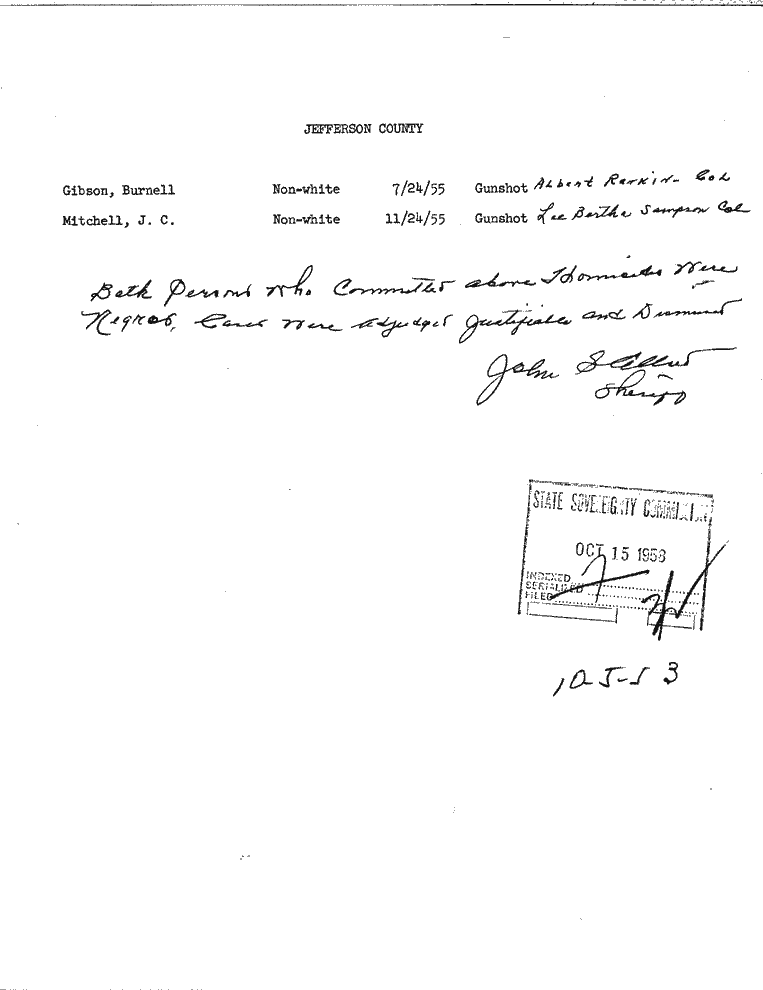 JEFFERSON COUNTY
Gibson, Burnell Non-white 7/24/55 Gunshot Albert Rankin - Col
Mitchell, J. C. Non-white 11/24/55 Gunshot Lee Bertha Sampson Col
Both Persons Who Committed above Homicides Were
Negros, Cases Were adjudged Justifiable and Dismissed
John S
Sheriff
STATE SOVEREIGNTY COMMISSION
OCT 15 1958
INDEXED
SERIALIZED
FILED